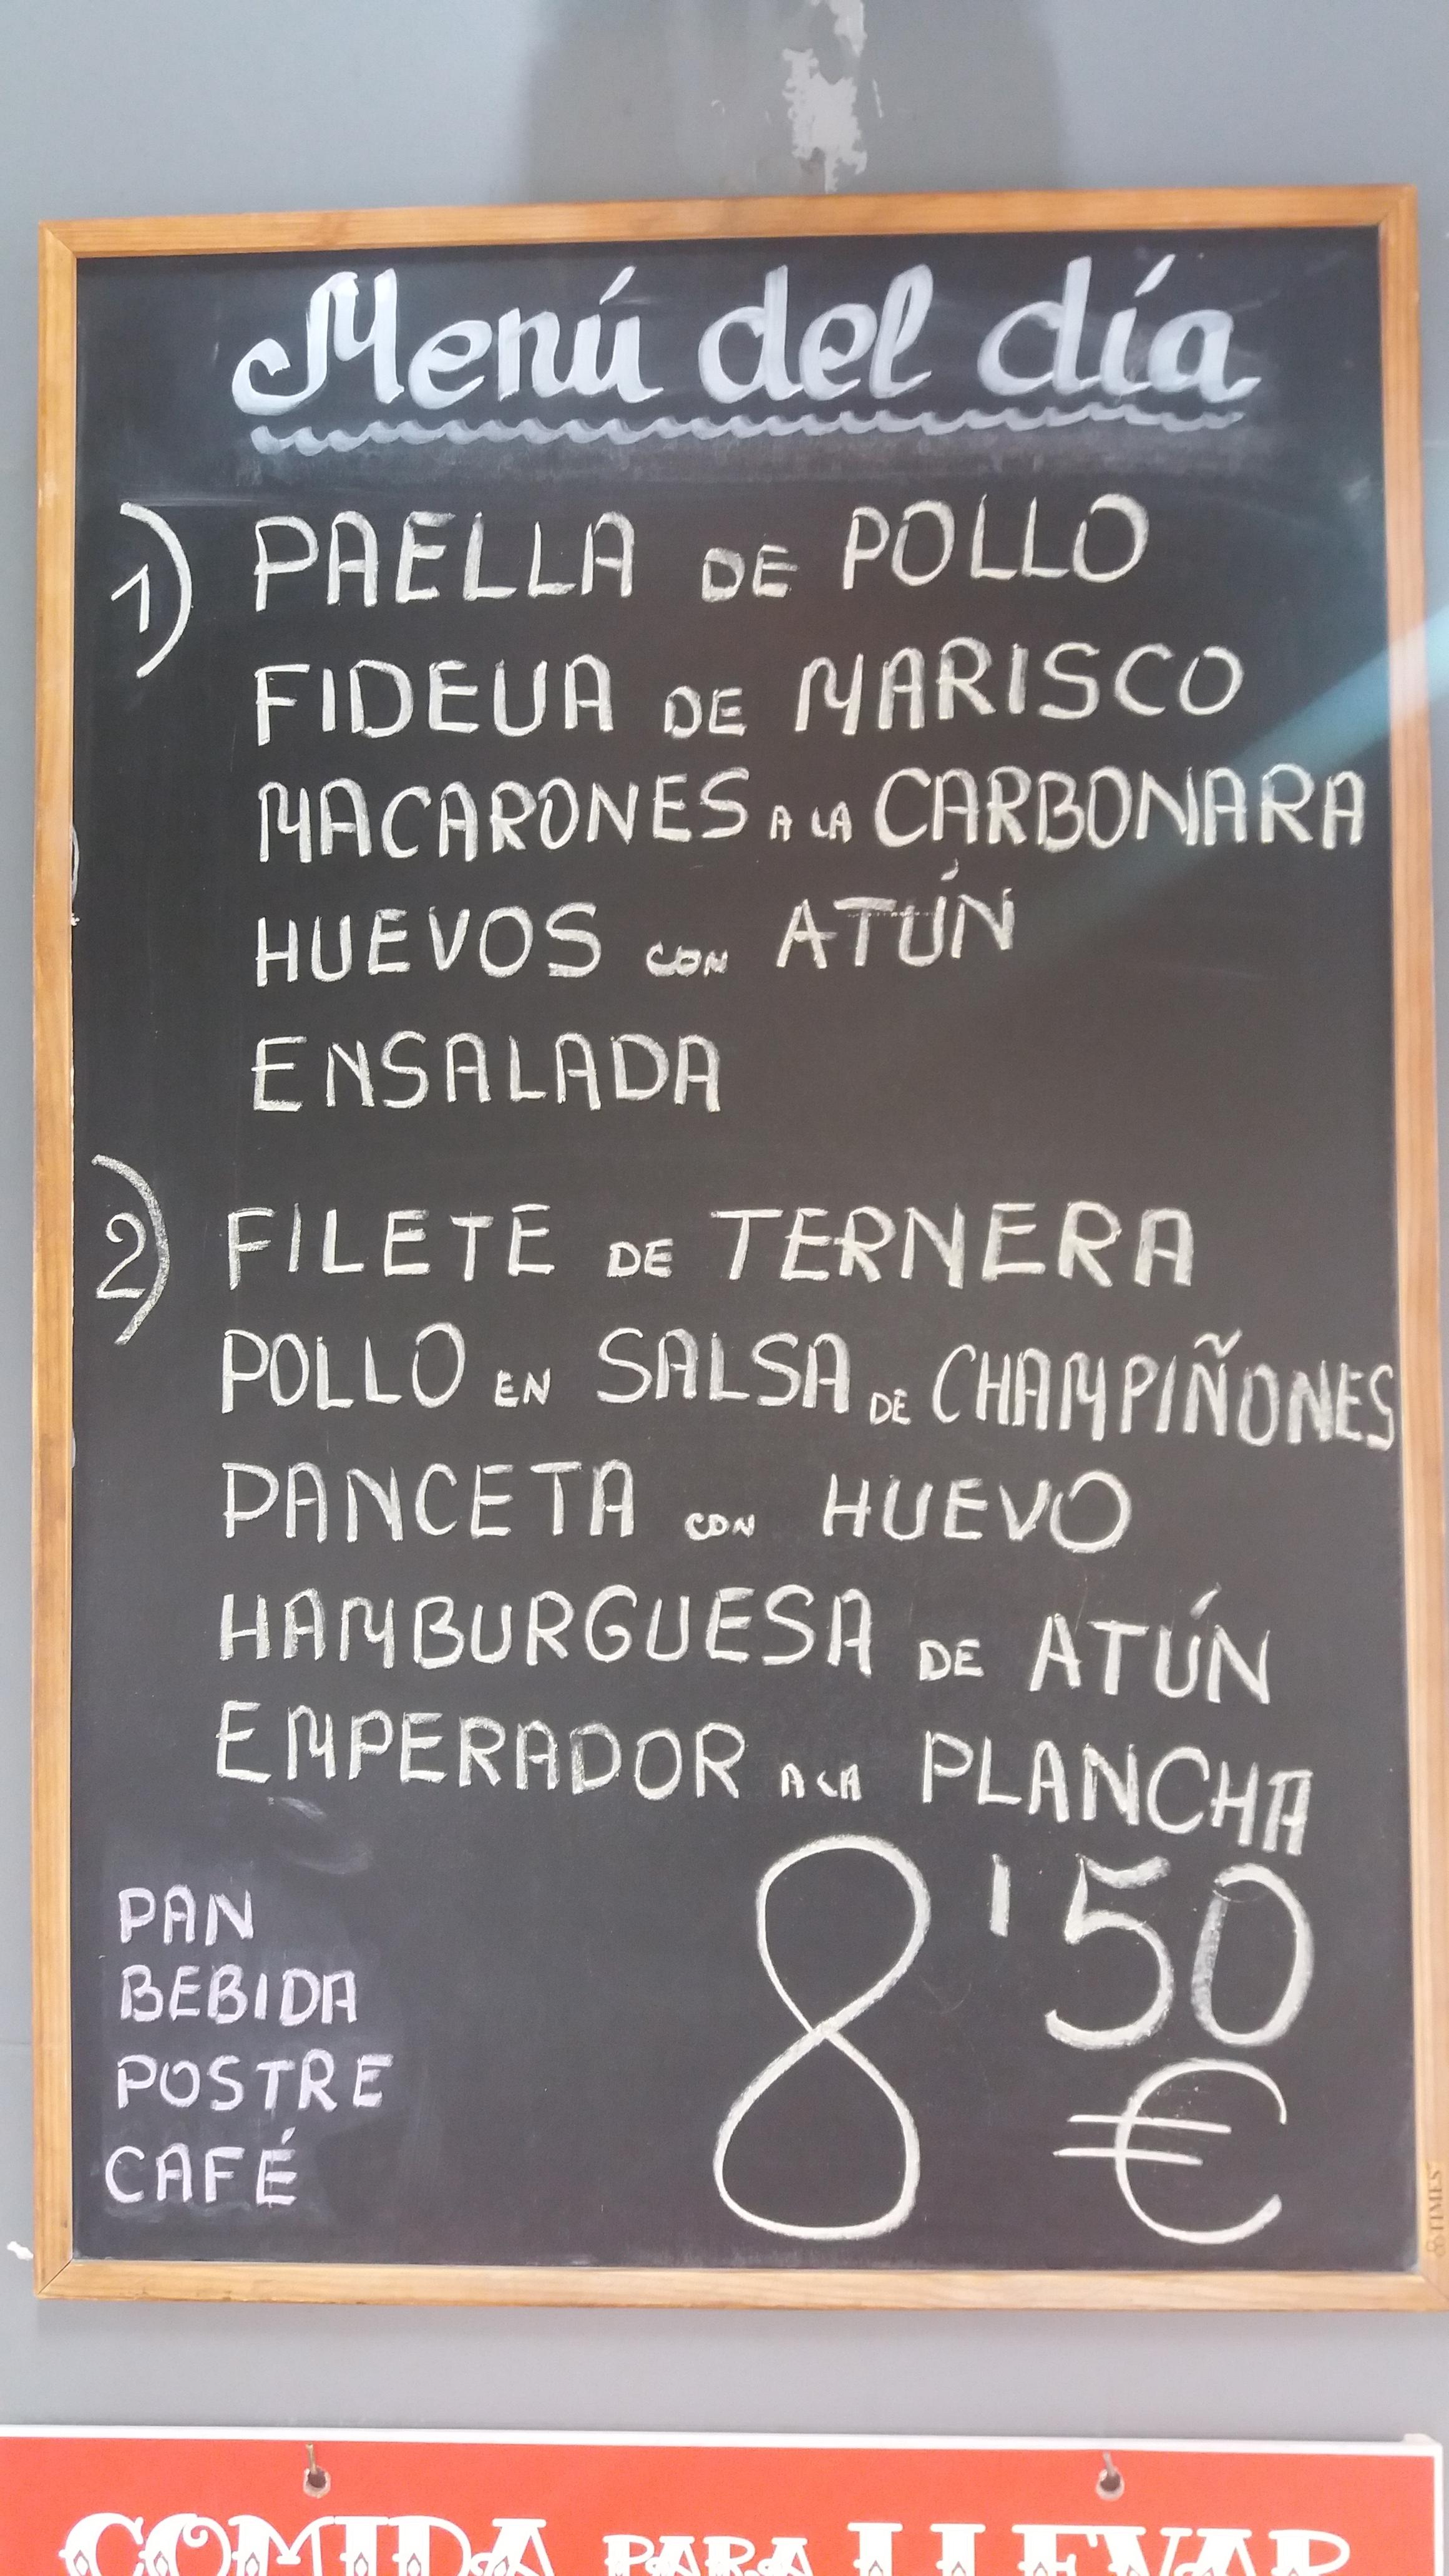 Menú del día
1) PAELLA DE POLLO
FIDEUA DE MARISCO
MACARONES A LA CARBONARA
HUEVOS CON ATÚN
ENSALADA
2) FILETE DE TERNERA
POLLO EN SALSA DE CHAMPIÑONES
PANCETA CON HUEVO
HAMBURGUESA DE ATÚN
EMPERADOR A LA PLANCHA
PAN
BEBIDA
POSTRE
CAFÉ
8'50
€
TIMES
COMIDA PARA LLEVAR